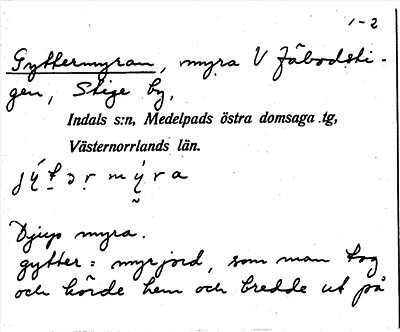 1-2
Gyttermyran, myra V Fäbodsti-
gen, Stige by,
Indals s:n, Medelpads östra domsaga .tg,
Västernorrlands län.
Djup myra.
gytter = myrjord, som man tog
och körde hem och bredde ut på